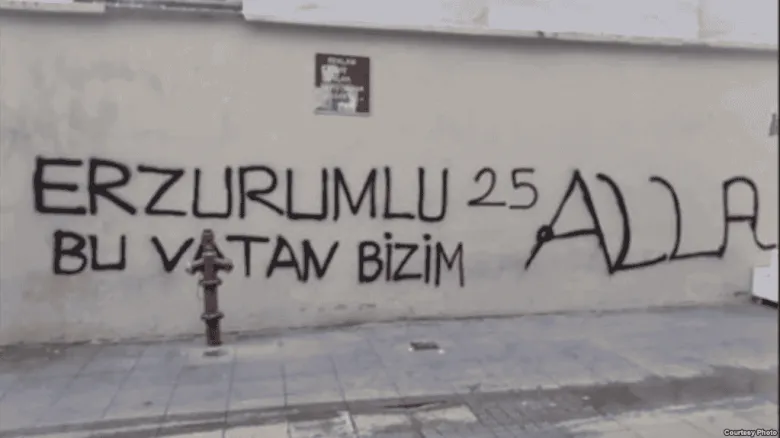 ERZURUMLU 25 ALLA
BU VATAN BİZİM
Courtesy Photo